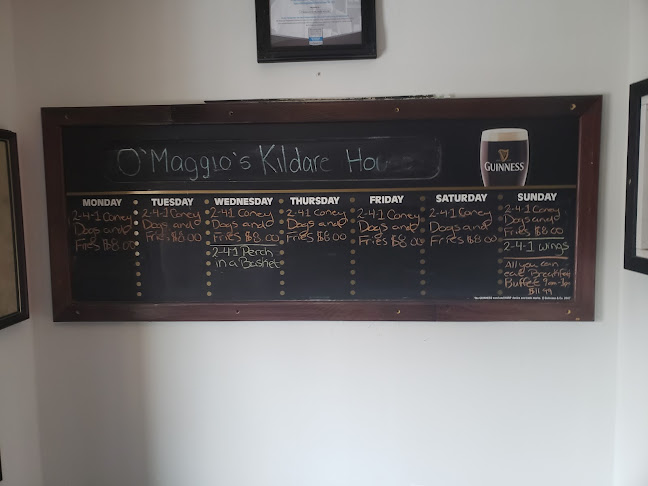 O'Maggio's Kildare House
GUINNESS
MONDAY
2-4-1 Coney
Dogs and
Fries $8.00
TUESDAY
2-4-1 Coney
Dogs and
Fries $8.00
WEDNESDAY
2-4-1 Coney
Dogs and
Fries $8.00
2-4-1 Perch
in a Basket
THURSDAY
2-4-1 Coney
Dogs and
Fries $8.00
FRIDAY
2-4-1 Coney
Dogs and
Fries $8.00
SATURDAY
2-4-1 Coney
Dogs and
Fries $8.00
SUNDAY
2-4-1 Coney
Dogs and
Fries $8.00
2-4-1 Wings
All you can
eat Breakfast
Buffet 9am-1pm
$11.99